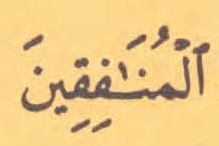 ٱلْمُنَـٰفِقِينَ